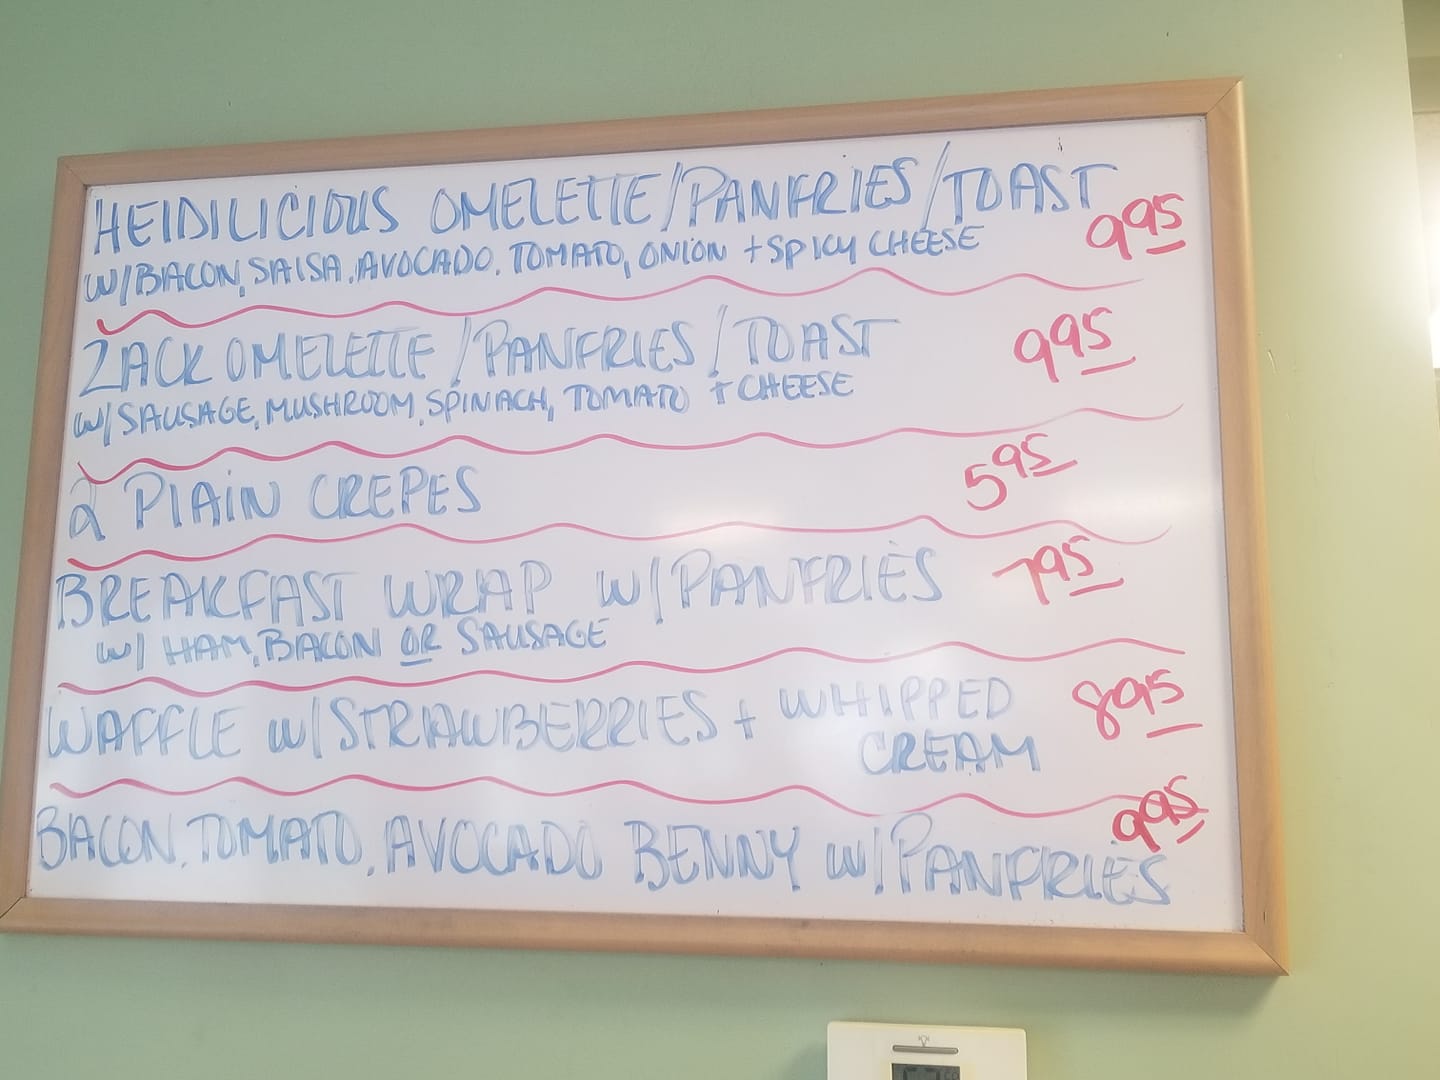 HEIDILICIOUS OMELETTE/PANFRIES/TOAST 995
W/BACON, SALSA, AVOCADO, TOMATO, ONION + SPICY CHEESE
ZACK OMELETTE/PANFRIES/TOAST 995
W/ SAUSAGE, MUSHROOM, SPINACH, TOMATO + CHEESE
2 PLAIN CREPES 595
BREAKFAST WRAP W/PANFRIES 795
W/ HAM, BACON OR SAUSAGE
WAFFLE W/STRAWBERRIES + WHIPPED 895
CREAM
BACON, TOMATO, AVOCADO BENNY W/PANFRIES 995